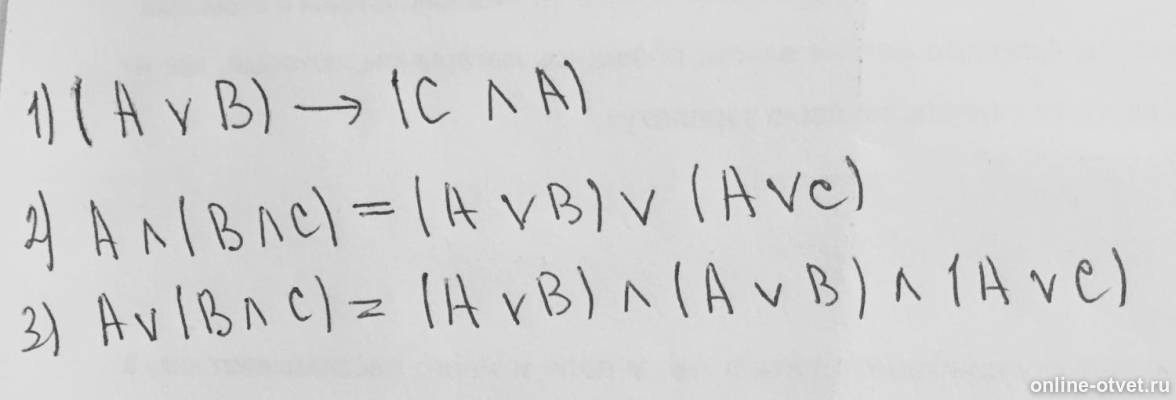 1) (A ∨ B) → (C ∧ A)
2) A ∧ (B ∧ C) = (A ∨ B) ∨ (A ∨ C)
3) A ∨ (B ∧ C) = (A ∨ B) ∧ (A ∨ B) ∧ (A ∨ C)
online-otvet.ru